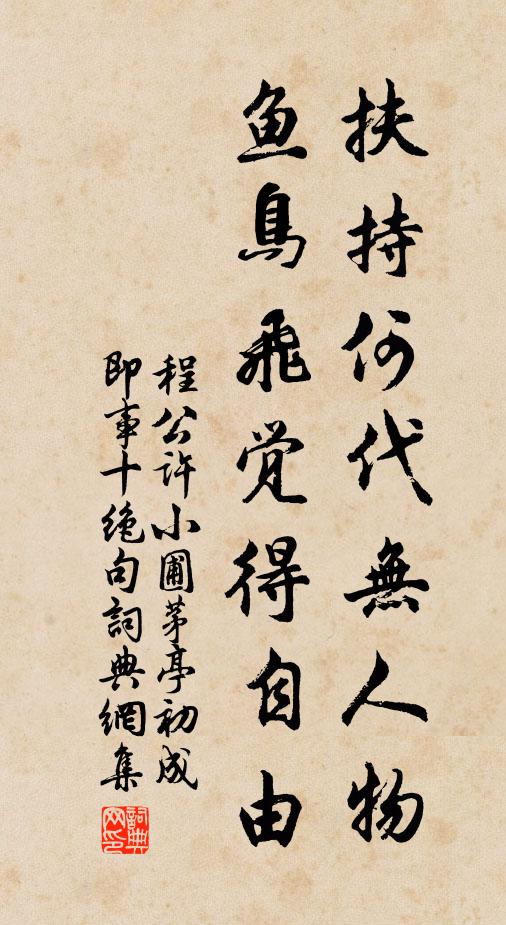 扶持何代無人物
鱼鳥飛觉得自由
程公许小圃茅亭初成
即事十绝句詞典網集
詞典
网印